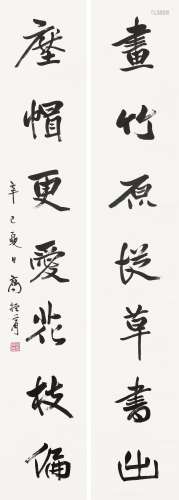 畫竹原從草書出
壓帽更愛花枝偏
辛巳夏日